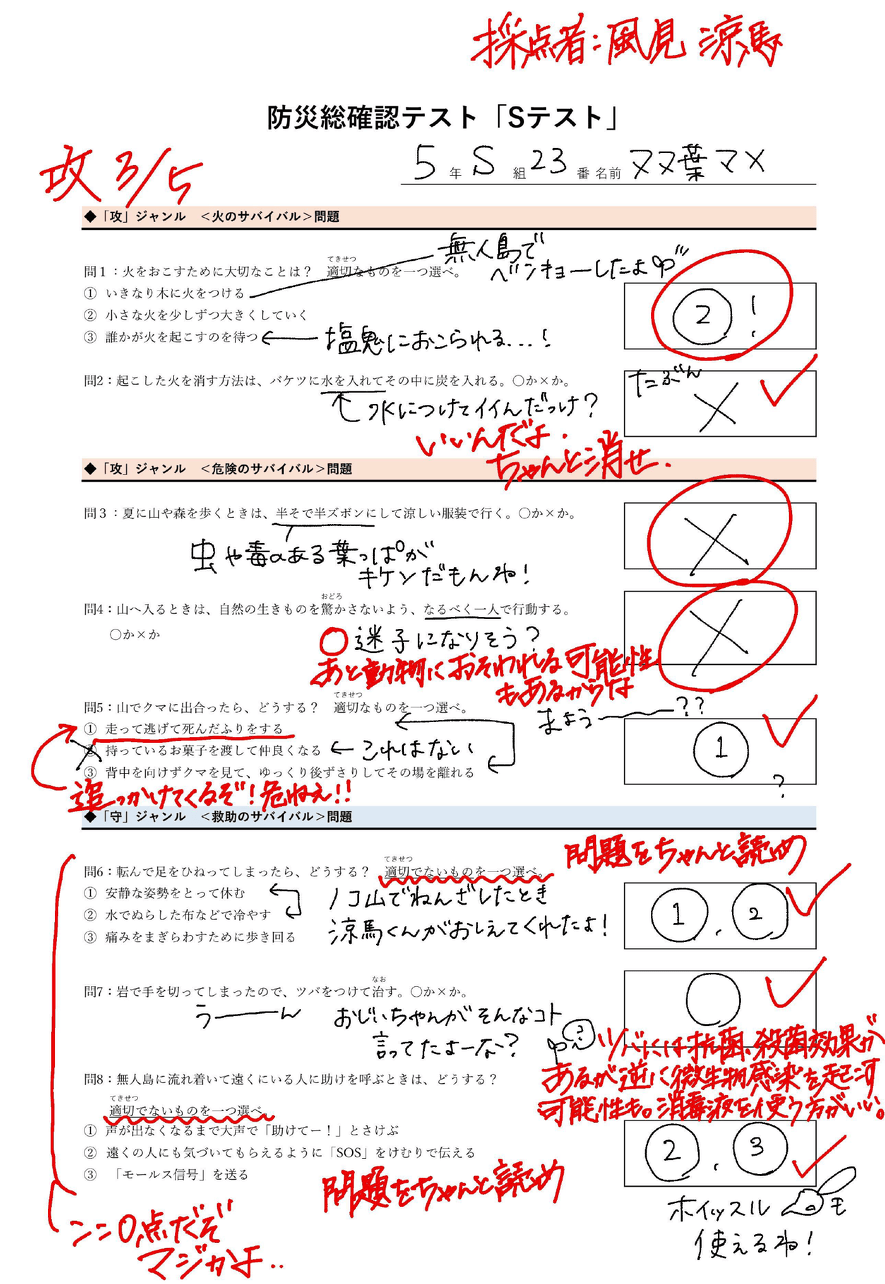 採点者:風見 涼馬
防災総確認テスト「Sテスト」
攻 3/5
5年 S組 23番 名前 双葉マメ
◆「攻」ジャンル <火のサバイバル>問題
無人島で
ベンキョーしたよ
てきせつ
問1:火をおこすために大切なことは? 適切なものを一つ選べ。
① いきなり木に火をつける
② 小さな火を少しずつ大きくしていく
③ 誰かが火を起こすのを待つ
塩鬼におこられる...!
②!
問2:起こした火を消す方法は、バケツに水を入れてその中に炭を入れる。〇か×か。
水につけてイイんだっけ?
たぶん
×
いいんだよ.
ちゃんと消せ.
◆「攻」ジャンル <危険のサバイバル>問題
問3:夏に山や森を歩くときは、半そで半ズボンにして涼しい服装で行く。〇か×か。
虫や毒のある葉っぱが
キケンだもんね!
×
おどろ
問4:山へ入るときは、自然の生きものを驚かさないよう、なるべく一人で行動する。
〇か×か
〇迷子になりそう?
あと動物におそわれる可能性
もあるからな
×
てきせつ
問5:山でクマに出合ったら、どうする? 適切なものを一つ選べ。
まよう——??
① 走って逃げて死んだふりをする
② 持っているお菓子を渡して仲良くなる
これはない
③ 背中を向けずクマを見て、ゆっくり後ずさりしてその場を離れる
①
?
追っかけてくるぞ!危ねぇ!!
◆「守」ジャンル <救助のサバイバル>問題
問題をちゃんと読め
てきせつ
問6:転んで足をひねってしまったら、どうする? 適切でないものを一つ選べ。
① 安静な姿勢をとって休む
② 水でぬらした布などで冷やす
③ 痛みをまぎらわすために歩き回る
ノコ山でねんざしたとき
涼馬くんがおしえてくれたよ!
①、②
なお
問7:岩で手を切ってしまったので、ツバをつけて治す。〇か×か。
うーーん
おじいちゃんがそんなコト
言ってたよーな?
?
〇
ツバには抗菌、殺菌効果が
あるが逆に微生物感染を起こす
可能性も。消毒液を使う方がいい。
問8:無人島に流れ着いて遠くにいる人に助けを呼ぶときは、どうする?
てきせつ
適切でないものを一つ選べ
① 声が出なくなるまで大声で「助けてー!」とさけぶ
② 遠くの人にも気づいてもらえるように「SOS」をけむりで伝える
③ 「モールス信号」を送る
②、③
問題をちゃんと読め
ホイッスルも
使えるね!
ここ0点だぞ
マジかよ..